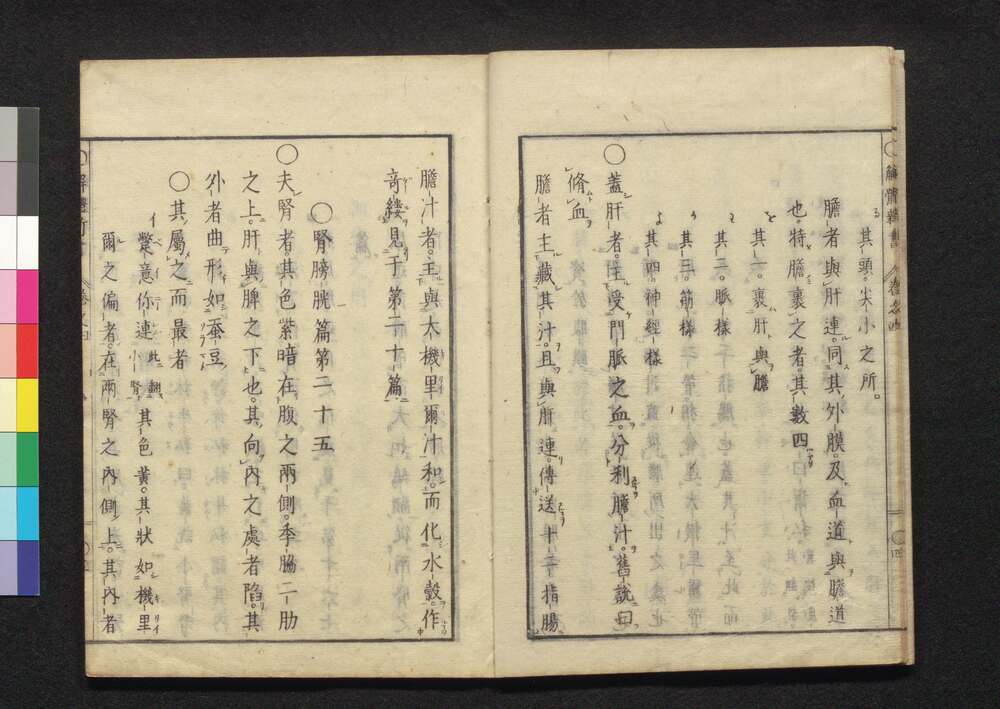 解體新書 卷之四
其頭尖小之所。
膽者與肝連。同其外膜。及血道。與膽道
也。特膽裹之者。其數四。曰
其一。裹肝與膽
其二。脈樣
其三。筋樣
其四。神經樣
○蓋肝者。主受門脈之血。分利膽汁。舊說曰
脩血
膽者主藏其汁。且與肝連。傳送十二指腸
膽汁者。主與大機里爾汁和。而化水穀。作
奇縷見于第二十篇
○腎膀胱篇第二十五
○夫腎者。其色紫暗。在腹之兩側。季脇二肋
之上。肝與脾之下也。其向內之處者陷。其
外者曲。形如蚕豆
○其屬之而最者
蟞意你連 此翻小腎 其色黃。其狀如機里
爾之偏者。在兩腎之內側上。其內者